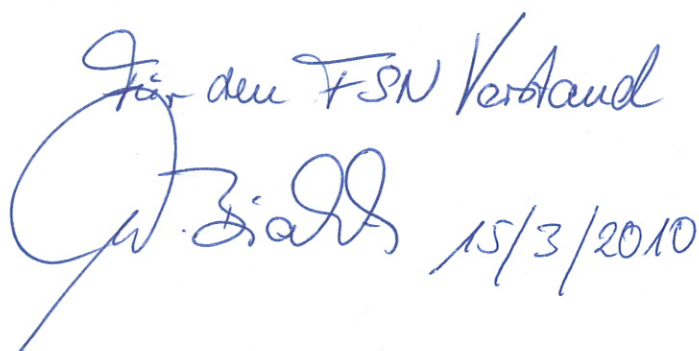 Für den FSN Vorstand
15/3/2010